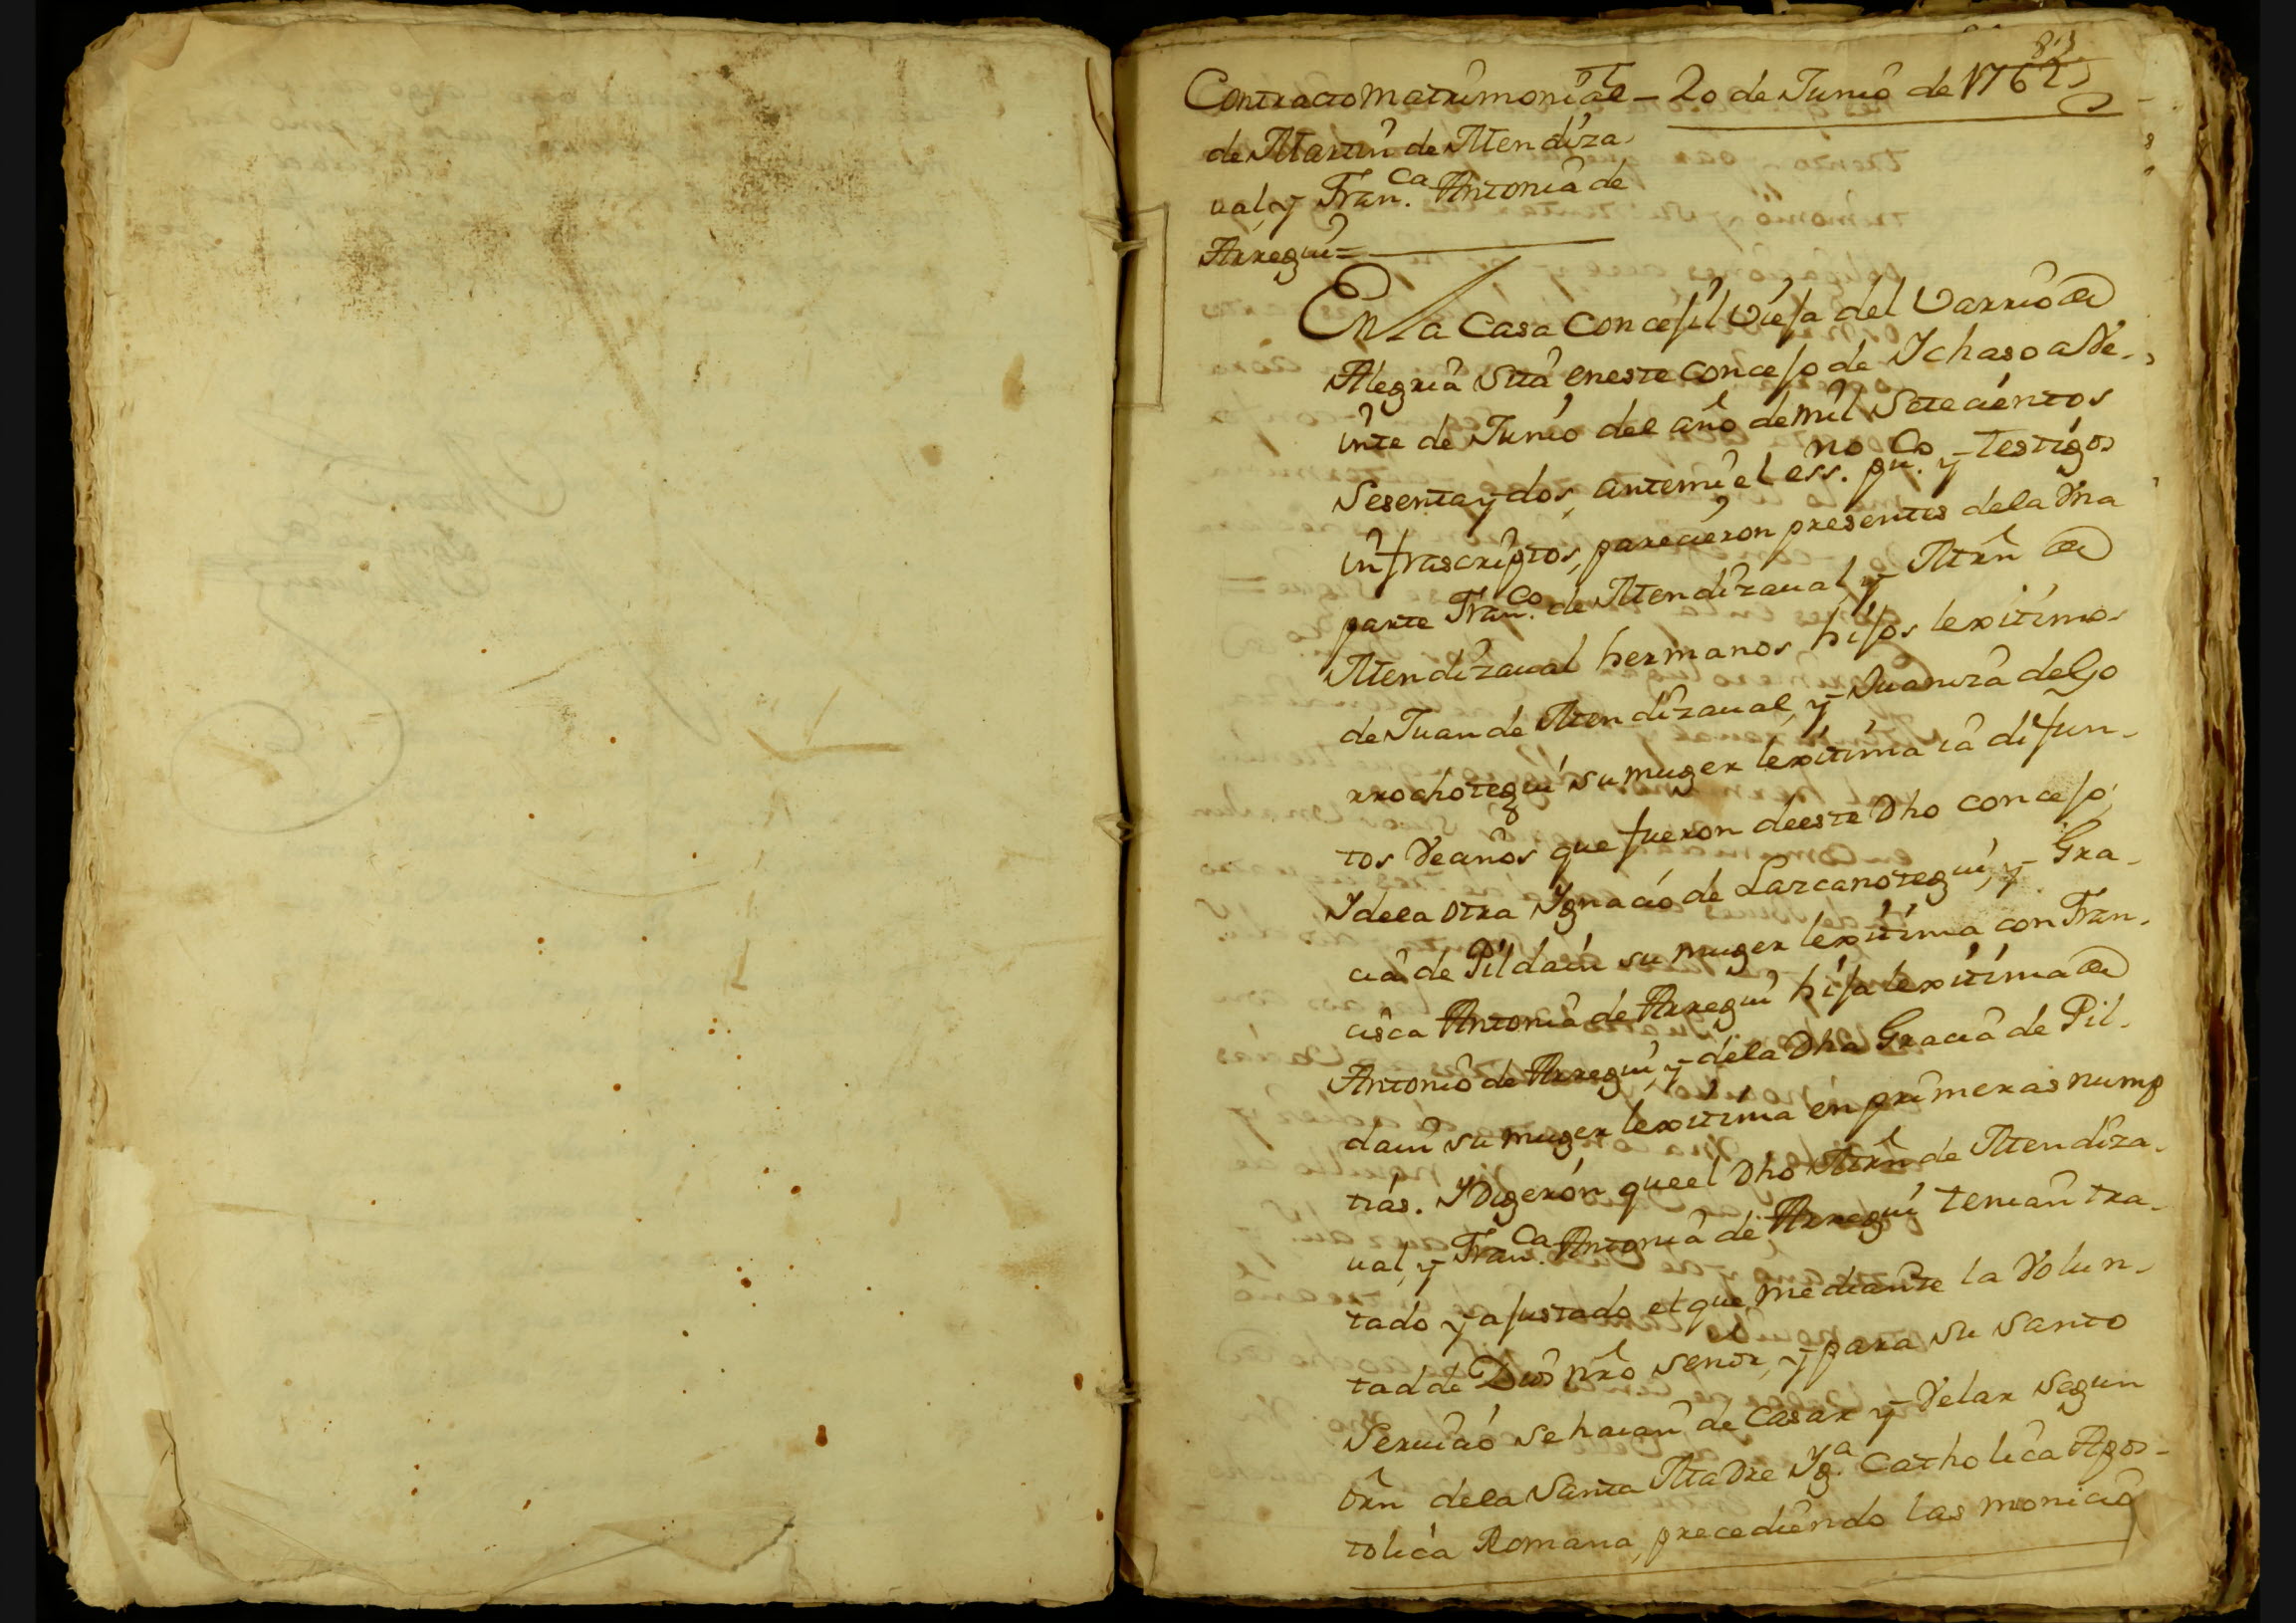 83
Contracto Matrimonial – 20 de Junio de 1762
de Martin de Mendiza
ual, y Fran.ca Antonia de
Arregui =
En la Casa Concejil Vieja del Varrio de
Alegria sita en este Concejo de Ichaso a Ve-
inte de Junio del año de mil Setecientos
Sesenta y dos, ante mi el ess.no pu.co y testigos
infrascriptos, parecieron presentes de la Vna
parte Fran.co de Mendizaual, y Mrn de
Mendizaual hermanos, hijos lexitimos
de Juan de Mendizaual, y Juaniza de Go
rrochotegui su muger lexitima ia difun-
tos Vecinos que fueron de este Dho Concejo;
I de la otra Ignacio de Lazcanotegui, y Gra-
cia de Pildain su muger lexitima con Fran-
cisca Antonia de Arregui hija lexitima de
Antonio de Arregui, y de la Dha Gracia de Pil-
dain su muger lexitima en primeras nump
tias. I Digeron que el Dho Mrn de Mendiza-
ual, y Fran.ca Antonia de Arregui tenian tra-
tado y ajustado el que mediante la Volun-
tad de Dios nro señor, y para su santo
Seruicio se hauian de Casar y Velar segun
orn de la Santa Madre Yg.a Catholica Apos-
tolica Romana, precediendo las monicio